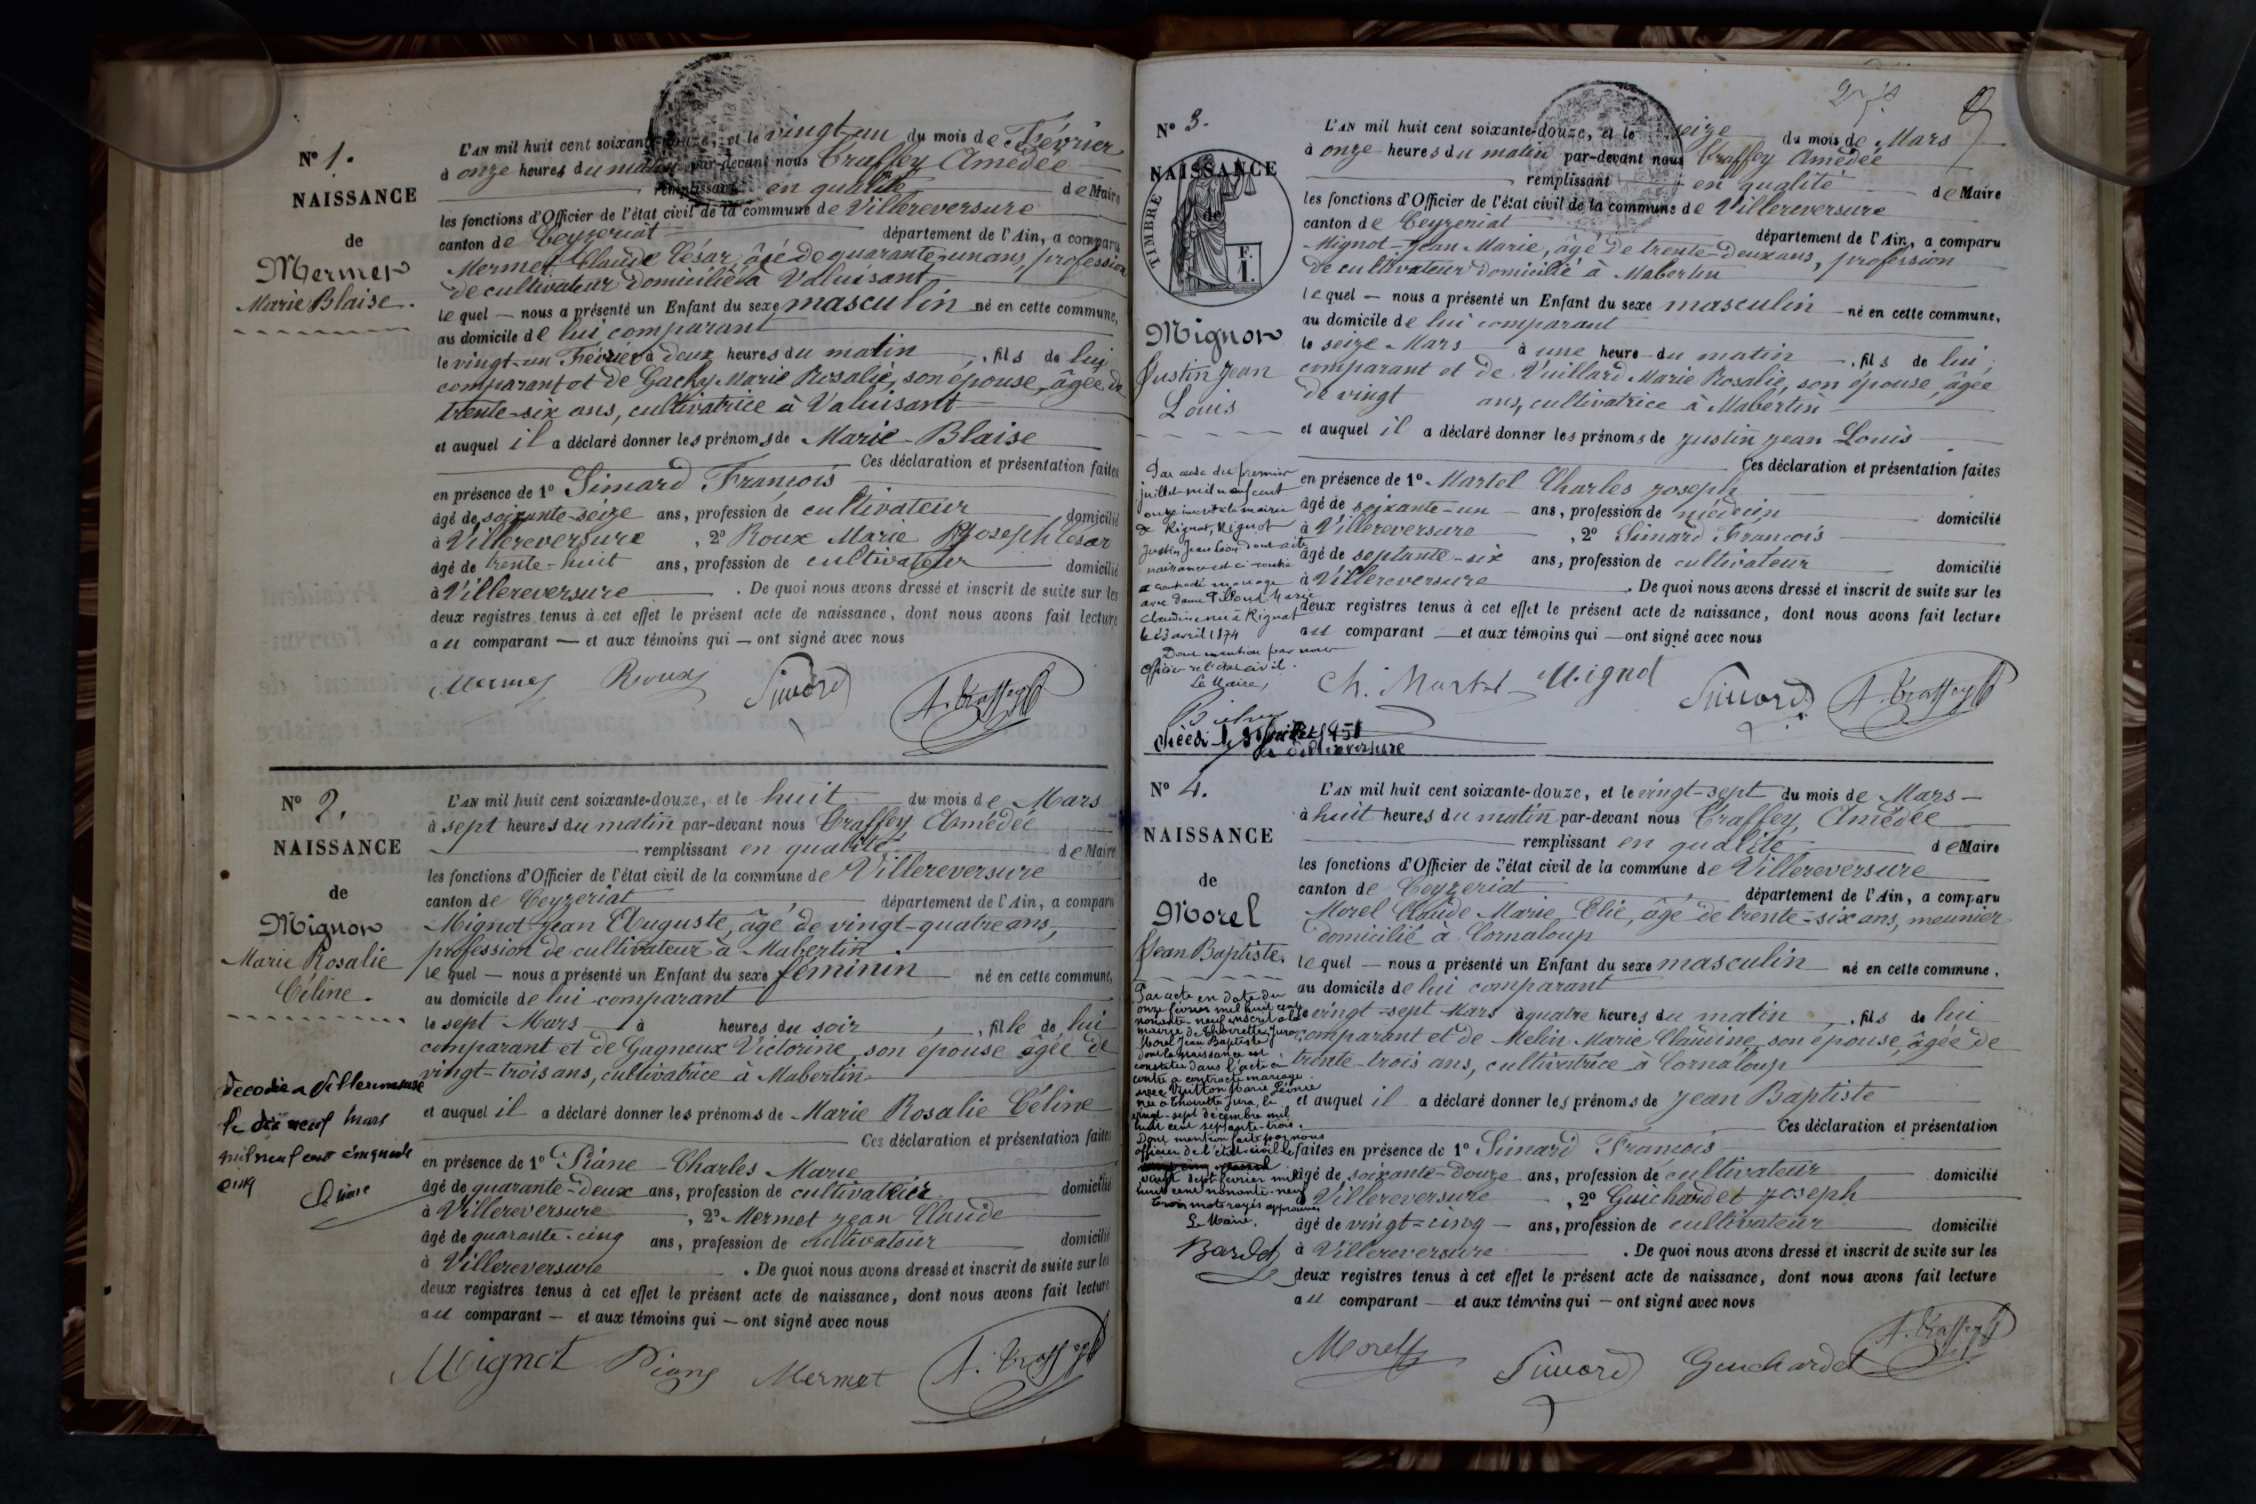 N° 1.
NAISSANCE
de
Mermet
Marie Blaise.
L'AN mil huit cent soixante-douze, et le vingt-un du mois de Février
à onze heures du matin par-devant nous Traffey Amédée
remplissant en qualité de Maire
les fonctions d'Officier de l'état civil de la commune de Villereversure
canton de Ceyzeriat département de l'Ain, a comparu
Mermet Claude César, âgé de quarante-un ans, profession
de cultivateur domicilié à Valuisant
lequel — nous a présenté un Enfant du sexe masculin né en cette commune,
au domicile de lui comparant
le vingt-un Février à deux heures du matin, fils de lui
comparant et de Gachy Marie Rosalie, son épouse, âgée de
trente-six ans, cultivatrice à Valuisant
et auquel il a déclaré donner les prénoms de Marie-Blaise
Ces déclaration et présentation faites
en présence de 1° Simard François
âgé de soixante-seize ans, profession de cultivateur domicilié
à Villereversure, 2° Roux Marie Joseph César
âgé de trente-huit ans, profession de cultivateur domicilié
à Villereversure. De quoi nous avons dressé et inscrit de suite sur les
deux registres tenus à cet effet le présent acte de naissance, dont nous avons fait lecture
au comparant — et aux témoins qui — ont signé avec nous
Mermet Roux Simard A. Traffey
N° 2.
NAISSANCE
de
Mignot
Marie Rosalie
Céline.
Décédée à Villereversure
le dix neuf mars
mil neuf cent cinquante
cinq
Le Maire
L'AN mil huit cent soixante-douze, et le huit du mois de Mars
à sept heures du matin par-devant nous Traffey Amédée
remplissant en qualité de Maire
les fonctions d'Officier de l'état civil de la commune de Villereversure
canton de Ceyzeriat département de l'Ain, a comparu
Mignot Jean Auguste, âgé de vingt-quatre ans,
profession de cultivateur à Mabertin
lequel — nous a présenté un Enfant du sexe féminin né en cette commune,
au domicile de lui comparant
le sept Mars à heures du soir, fille de lui
comparant et de Gagneux Victorine, son épouse âgée de
vingt-trois ans, cultivatrice à Mabertin
et auquel il a déclaré donner les prénoms de Marie Rosalie Céline
Ces déclaration et présentation faites
en présence de 1° Piane Charles Marie
âgé de quarante-deux ans, profession de cultivateur domicilié
à Villereversure, 2° Mermet Jean Claude
âgé de quarante-cinq ans, profession de cultivateur domicilié
à Villereversure. De quoi nous avons dressé et inscrit de suite sur les
deux registres tenus à cet effet le présent acte de naissance, dont nous avons fait lecture
au comparant — et aux témoins qui — ont signé avec nous
Mignot Mermet A. Traffey
N° 3.
NAISSANCE
de
TIMBRE
F.
1.
Mignot
Justin Jean
Louis
Par acte du premier
juillet mil neuf cent
onze inscrit à la mairie
de Rignat, Mignot
Justin Jean Louis dont acte
naissance est ci-contre
a contracté mariage
avec dame Marie
Claudine née à Rignat
le 23 avril 1874
Dont mention par nous
officier de l'état civil.
Le Maire,
L'AN mil huit cent soixante-douze, et le seize du mois de Mars
à onze heures du matin par-devant nous Traffey Amédée
remplissant en qualité de Maire
les fonctions d'Officier de l'état civil de la commune de Villereversure
canton de Ceyzeriat département de l'Ain, a comparu
Mignot Jean Marie, âgé de trente-deux ans, profession
de cultivateur domicilié à Mabertin
lequel — nous a présenté un Enfant du sexe masculin né en cette commune,
au domicile de lui comparant
le seize Mars à une heure du matin, fils de lui,
comparant et de Vuillard Marie Rosalie, son épouse, âgée
de vingt ans, cultivatrice à Mabertin
et auquel il a déclaré donner les prénoms de Justin Jean Louis
Ces déclaration et présentation faites
en présence de 1° Martel Charles Joseph
âgé de soixante-un ans, profession de médecin domicilié
à Villereversure, 2° Simard François
âgé de septante-six ans, profession de cultivateur domicilié
à Villereversure. De quoi nous avons dressé et inscrit de suite sur les
deux registres tenus à cet effet le présent acte de naissance, dont nous avons fait lecture
au comparant — et aux témoins qui — ont signé avec nous
Ch. Martel Mignot Simard A. Traffey
N° 4.
NAISSANCE
de
Morel
Jean Baptiste.
Par acte en date du
onze février mil huit cent
nonante-neuf inscrit à la
mairie de Thoirette Jura
Morel Jean Baptiste
dont la naissance est
constatée dans l'acte ci-
contre a contracté mariage
avec Marie Léonie
née à Thoirette Jura, le
vingt-sept décembre mil
huit cent septante-trois.
Dont mention faite par nous
officier de l'état-civil le
vingt sept février mil
huit cent nonante-neuf
Trois mots rayés approuvés
Le Maire,
Bardet
L'AN mil huit cent soixante-douze, et le vingt-sept du mois de Mars
à huit heures du matin par-devant nous Traffey Amédée
remplissant en qualité de Maire
les fonctions d'Officier de l'état civil de la commune de Villereversure
canton de Ceyzeriat département de l'Ain, a comparu
Morel Claude Marie Elie, âgé de trente-six ans, meunier
domicilié à Cornaloup
lequel — nous a présenté un Enfant du sexe masculin né en cette commune,
au domicile de lui comparant
le vingt-sept Mars à quatre heures du matin, fils de lui
comparant et de Melin Marie Claudine, son épouse, âgée de
trente-trois ans, cultivatrice à Cornaloup
et auquel il a déclaré donner les prénoms de Jean Baptiste
Ces déclaration et présentation
faites en présence de 1° Simard François
âgé de soixante-douze ans, profession de cultivateur domicilié
à Villereversure, 2° Guichardet Joseph
âgé de vingt-cinq ans, profession de cultivateur domicilié
à Villereversure. De quoi nous avons dressé et inscrit de suite sur les
deux registres tenus à cet effet le présent acte de naissance, dont nous avons fait lecture
au comparant — et aux témoins qui — ont signé avec nous
Morel Simard Guichardet A. Traffey